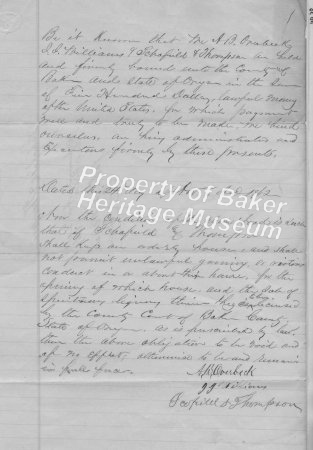 Be it Known that We A B Overbeck
J. J. Williams & Schofield & Thompson are held
and firmly bound unto the County of
Baker and State of Oregon in the Sum
of Five Hundred Dollars, lawful money
of the United States, for which payment
well and truly to be made, we bind
ourselves, our heirs administrators and
Executors firmly by these presents.
Dated this day of 1862
Now the condition of
that if Schofield & Thompson
Shall keep an orderly house and shall
not permit unlawful gaming or riotous
conduct in or about this house, for the
opening of which house, and the Sale of
Spirituous liquors therein they licensed
by the County Court of Baker County
State of Oregon, as is prescribed by law
then the above obligation to be void and
of no effect, otherwise to be and remain
in full force.
A B Overbeck
J J Williams
Schofield & Thompson
Property of Baker
Heritage Museum